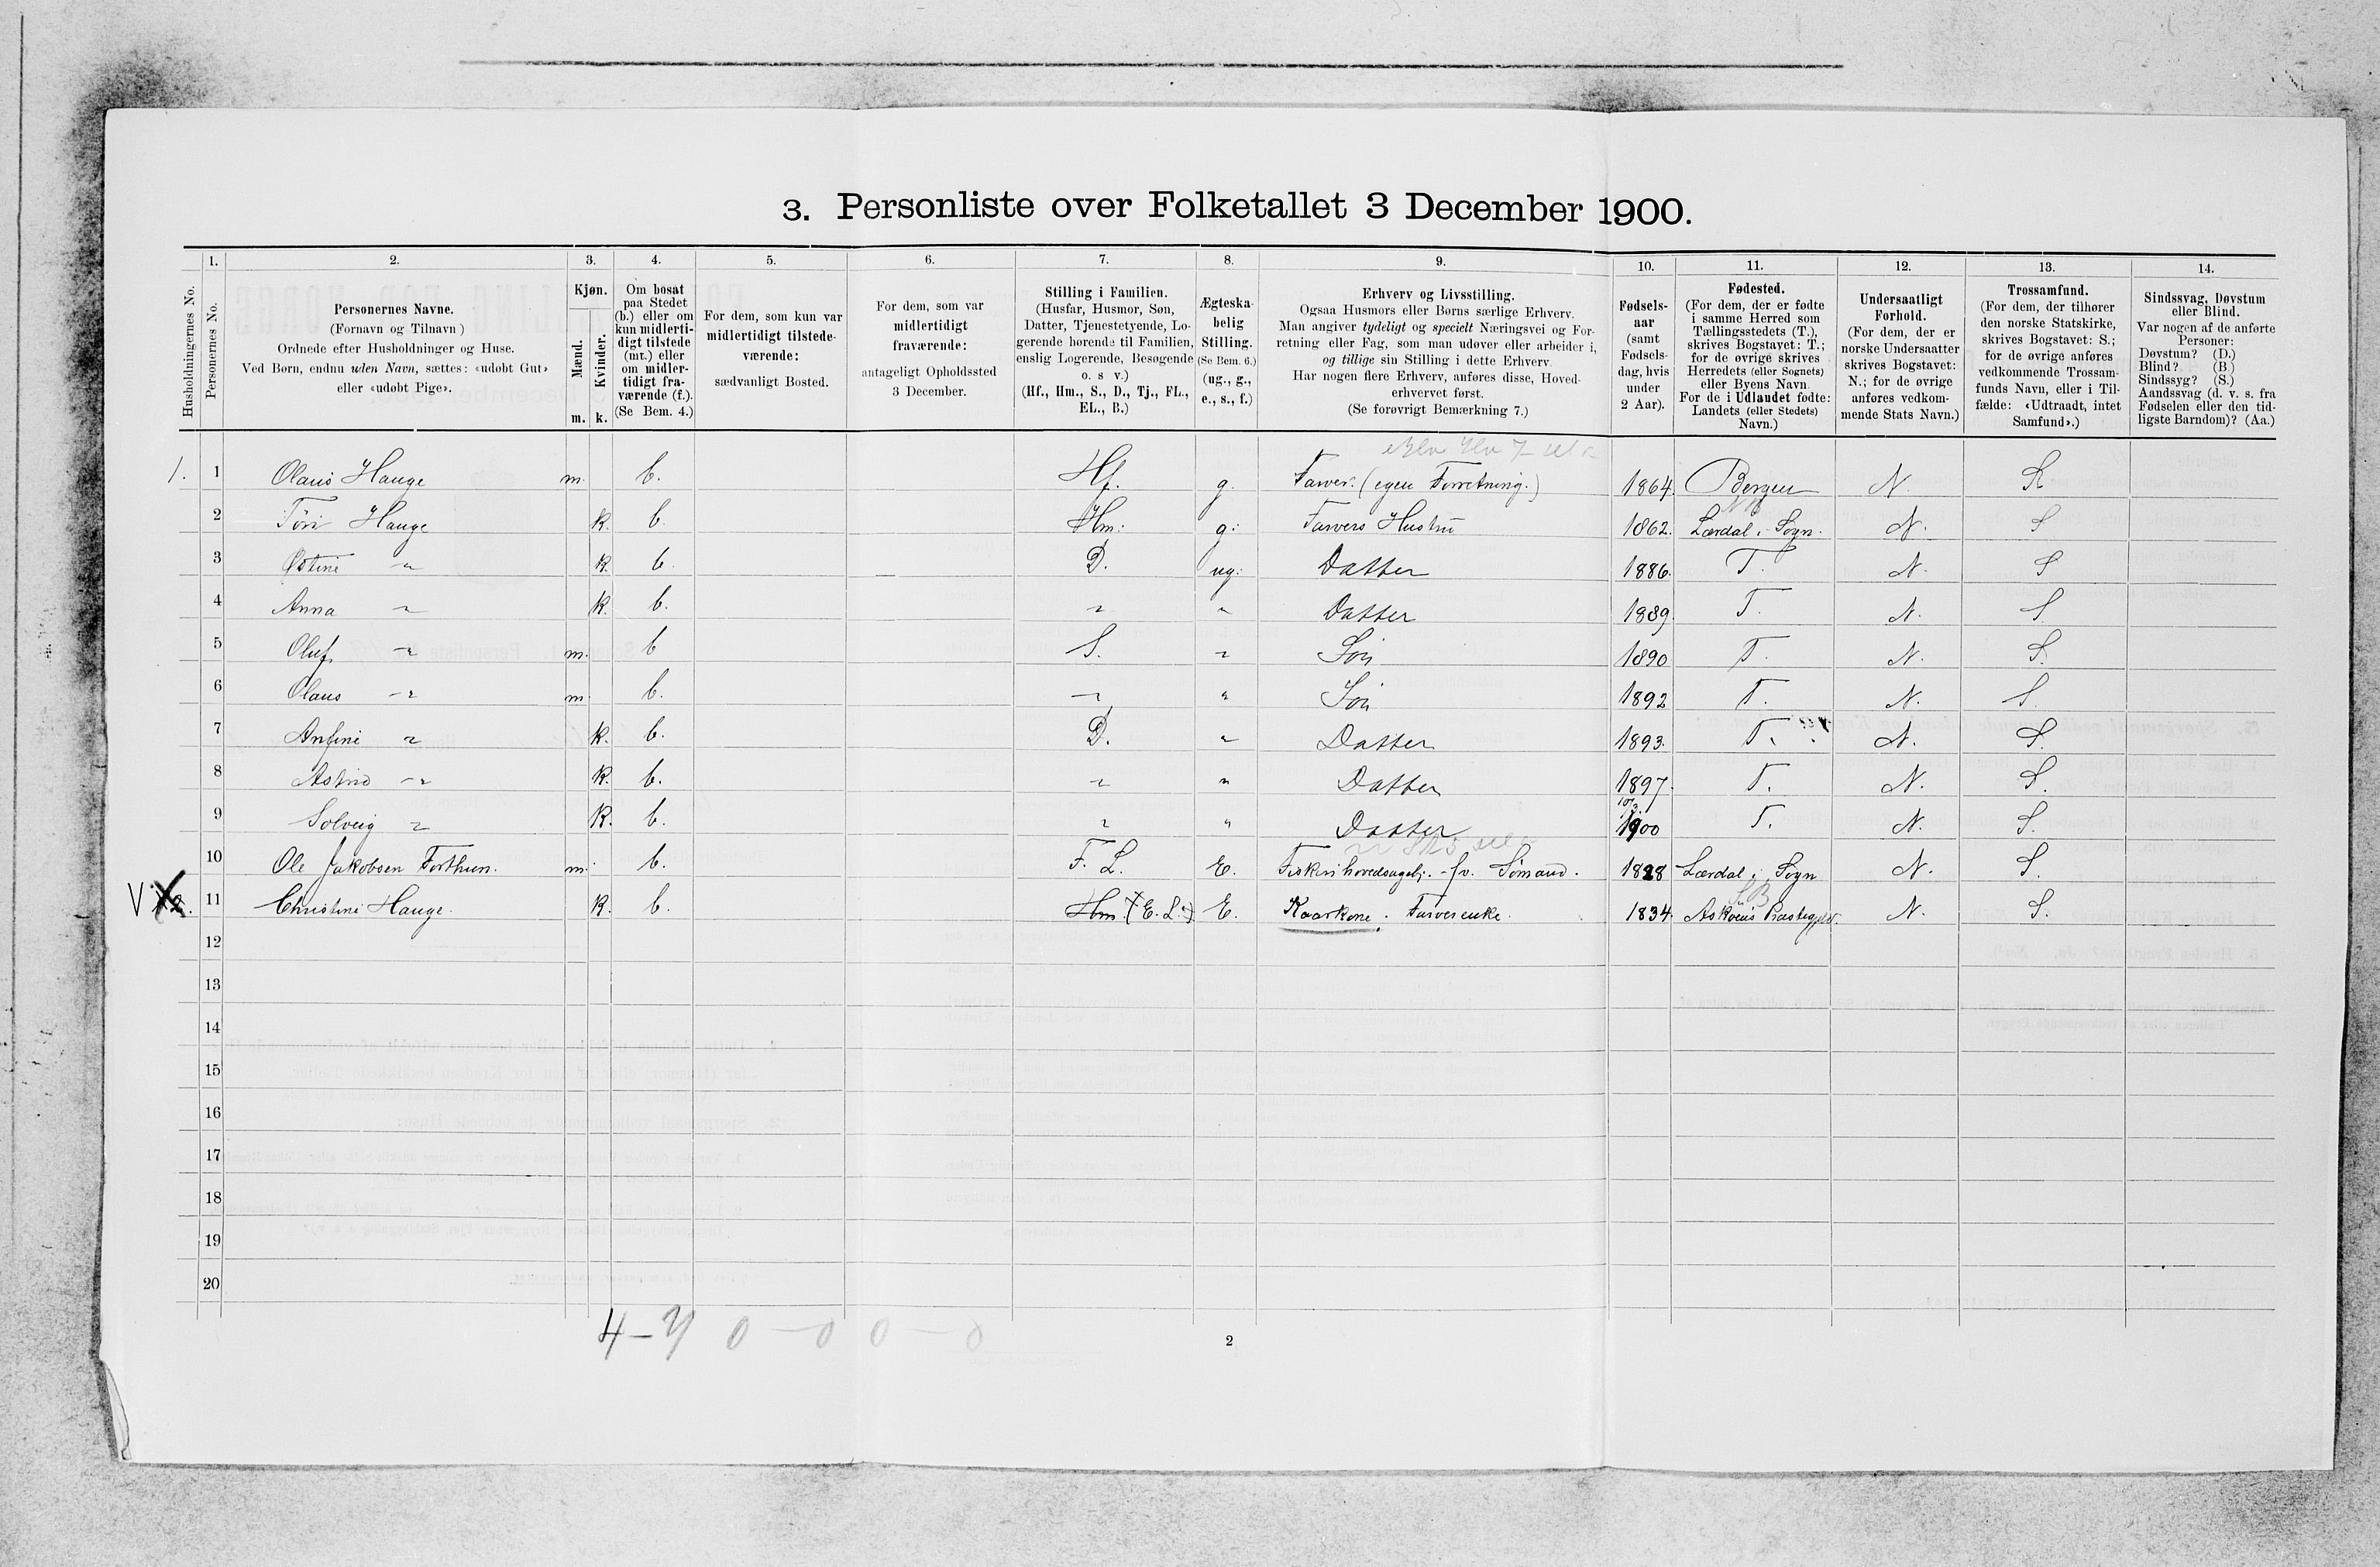 3. Personliste over Folketallet 3 December 1900.
1. 2. 3. 4. 5. 6. 7. 8. 9. 10. 11. 12. 13. 14.
Husholdningernes No.
Personernes No.
Personernes Navne.
(Fornavn og Tilnavn)
Ordnede efter Husholdninger og Huse.
Ved Børn, endnu uden Navn, sættes: «udøbt Gut»
eller «udøbt Pige».
Kjøn.
Mænd.
Kvinder.
m. k.
Om bosat
paa Stedet
(b.) eller om
kun midlerti-
digt tilstede
(mt.) eller
om midler-
tidigt fra-
værende (f.).
(Se Bem. 4.)
For dem, som kun var
midlertidigt tilstede-
værende:
sædvanligt Bosted.
For dem, som var
midlertidigt
fraværende:
antageligt Opholdssted
3 December.
Stilling i Familien.
(Husfar, Husmor, Søn,
Datter, Tjenestetyende, Lo-
gerende hørende til Familien,
enslig Logerende, Besøgende
o. s v.)
(Hf., Hm., S., D., Tj., FL.,
EL., B.)
Ægteska-
belig
Stilling.
(Se Bem. 6.)
(ug., g.,
e., s., f.)
Erhverv og Livsstilling.
Ogsaa Husmors eller Børns særlige Erhverv.
Man angiver tydeligt og specielt Næringsvei og For-
retning eller Fag, som man udøver eller arbeider i,
og tillige sin Stilling i dette Erhverv.
Har nogen flere Erhverv, anføres disse, Hoved-
erhvervet først.
(Se forøvrigt Bemærkning 7.)
Fødsels-
aar
(samt
Fødsels-
dag, hvis
under
2 Aar).
Fødested.
(For dem, der er fødte
i samme Herred som
Tællingsstedets (T.),
skrives Bogstavet: T.;
for de øvrige skrives
Herredets (eller Sognets)
eller Byens Navn.
For de i Udlandet fødte:
Landets (eller Stedets)
Navn.)
Undersaatligt
Forhold.
(For dem, der er
norske Undersaatter
skrives Bogstavet:
N.; for de øvrige
anføres vedkom-
mende Stats Navn.)
Trossamfund.
(For dem, der tilhører
den norske Statskirke,
skrives Bogstavet: S.;
for de øvrige anføres
vedkommende Trossam-
funds Navn, eller i Til-
fælde: «Udtraadt, intet
Samfund».)
Sindssvag, Døvstum
eller Blind.
Var nogen af de anførte
Personer:
Døvstum? (D.)
Blind? (B.)
Sindssyg? (S.)
Aandssvag (d. v. s. fra
Fødselen eller den tid-
ligste Barndom)? (Aa.)
1. 1 Olaus Hauge m. b. Hf. g. Farver. (egen Forretning.) 1864. Bergen N. S
2 Töri Hauge k. b. Hm. g. Farvers Hustru 1862. Lærdal i Sogn. N. S
3 Østine " k. b. D. ug. Datter 1886. T. N. S
4 Anna " k. b. " " Datter 1889. T. N. S
5 Oluf " m. b S. " Sön 1890 T. N. S.
6 Olaus " m b. " " Sön 1892 T. N. S.
7 Anfine " k. b. D. " Datter 1893. T. N. S.
8 Astrid " k. b. " " Datter 1897. T. N. S.
9 Solveig " k. b. " " Datter 1900 T. N. S.
10 Ole Jakobsen Forthun. m. b. F. L. E. Fiskeri hovedsagelj. - fv. Sömand. 1828 Lærdal i Sogn N. S.
11 Christine Hauge. k. b. Hm. (E. L.) E. Kaarkone. Farverenke. 1834. Askøens Præstegjeld. N. S.
12
13
14
15
16
17
18
19
20
4 - 7 0 - 0 0 - 0
2